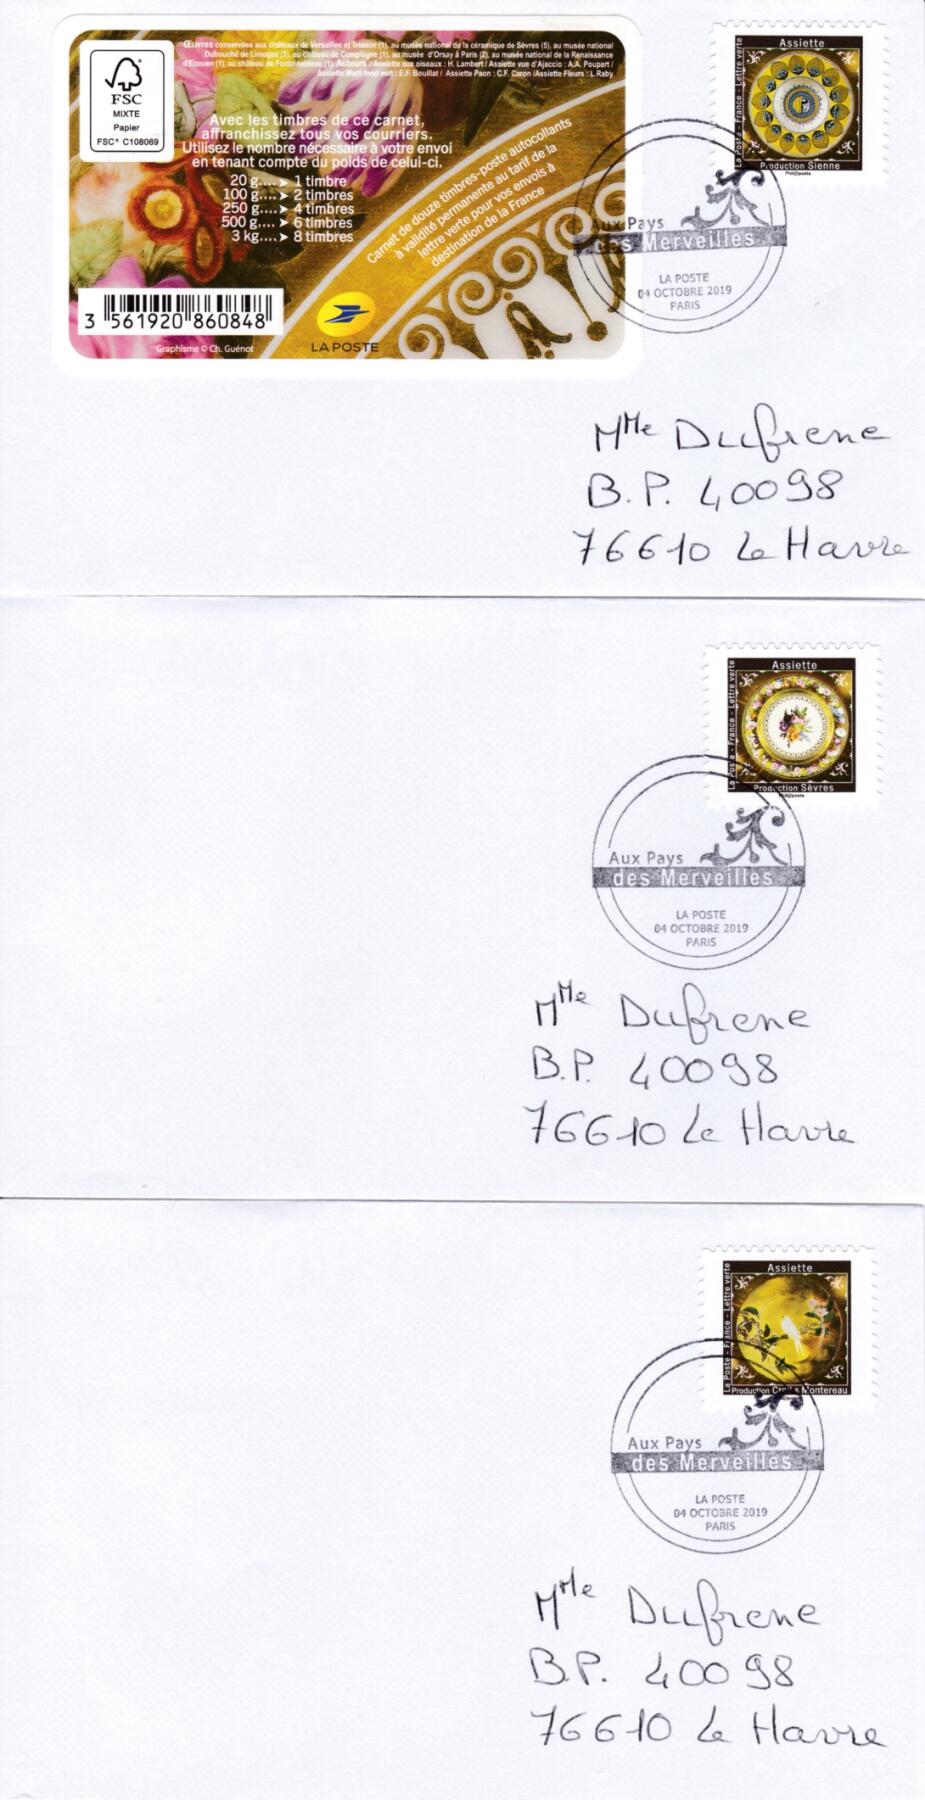 Œuvres conservées aux châteaux de Versailles et Trianon (1), au musée national de la céramique de Sèvres (5), au musée national
Dubouché de Limoges (1), au château de Compiègne (1), au musée d'Orsay à Paris (2), au musée national de la Renaissance
d'Ecouen (1), au château de Fontainebleau (1). Auteurs : Assiette aux oiseaux : H. Lambert / Assiette vue d'Ajaccio : A.A. Poupart /
Assiette Marli fond vert : E.F. Bouillat / Assiette Paon : C.F. Caron / Assiette Fleurs : L. Raby.
FSC
MIXTE
Papier
FSC® C108069
Avec les timbres de ce carnet,
affranchissez tous vos courriers.
Utilisez le nombre nécessaire à votre envoi
en tenant compte du poids de celui-ci.
20 g.... ➤ 1 timbre
100 g.... ➤ 2 timbres
250 g.... ➤ 4 timbres
500 g.... ➤ 6 timbres
3 kg.... ➤ 8 timbres
Carnet de douze timbres-poste autocollants
à validité permanente au tarif de la
lettre verte pour vos envois à
destination de la France
3 561920 860848
Graphisme © Ch. Guénot
LA POSTE
Assiette
La Poste - France - Lettre verte
Production Sienne
Phil@poste
Aux Pays
des Merveilles
LA POSTE
04 OCTOBRE 2019
PARIS
Mme Dufrene
B.P. 40098
76610 Le Havre
Assiette
La Poste - France - Lettre verte
Production Sèvres
Phil@poste
Aux Pays
des Merveilles
LA POSTE
04 OCTOBRE 2019
PARIS
Mme Dufrene
B.P. 40098
76610 Le Havre
Assiette
La Poste - France - Lettre verte
Production Creil & Montereau
Aux Pays
des Merveilles
LA POSTE
04 OCTOBRE 2019
PARIS
Mme Dufrene
B.P. 40098
76610 Le Havre